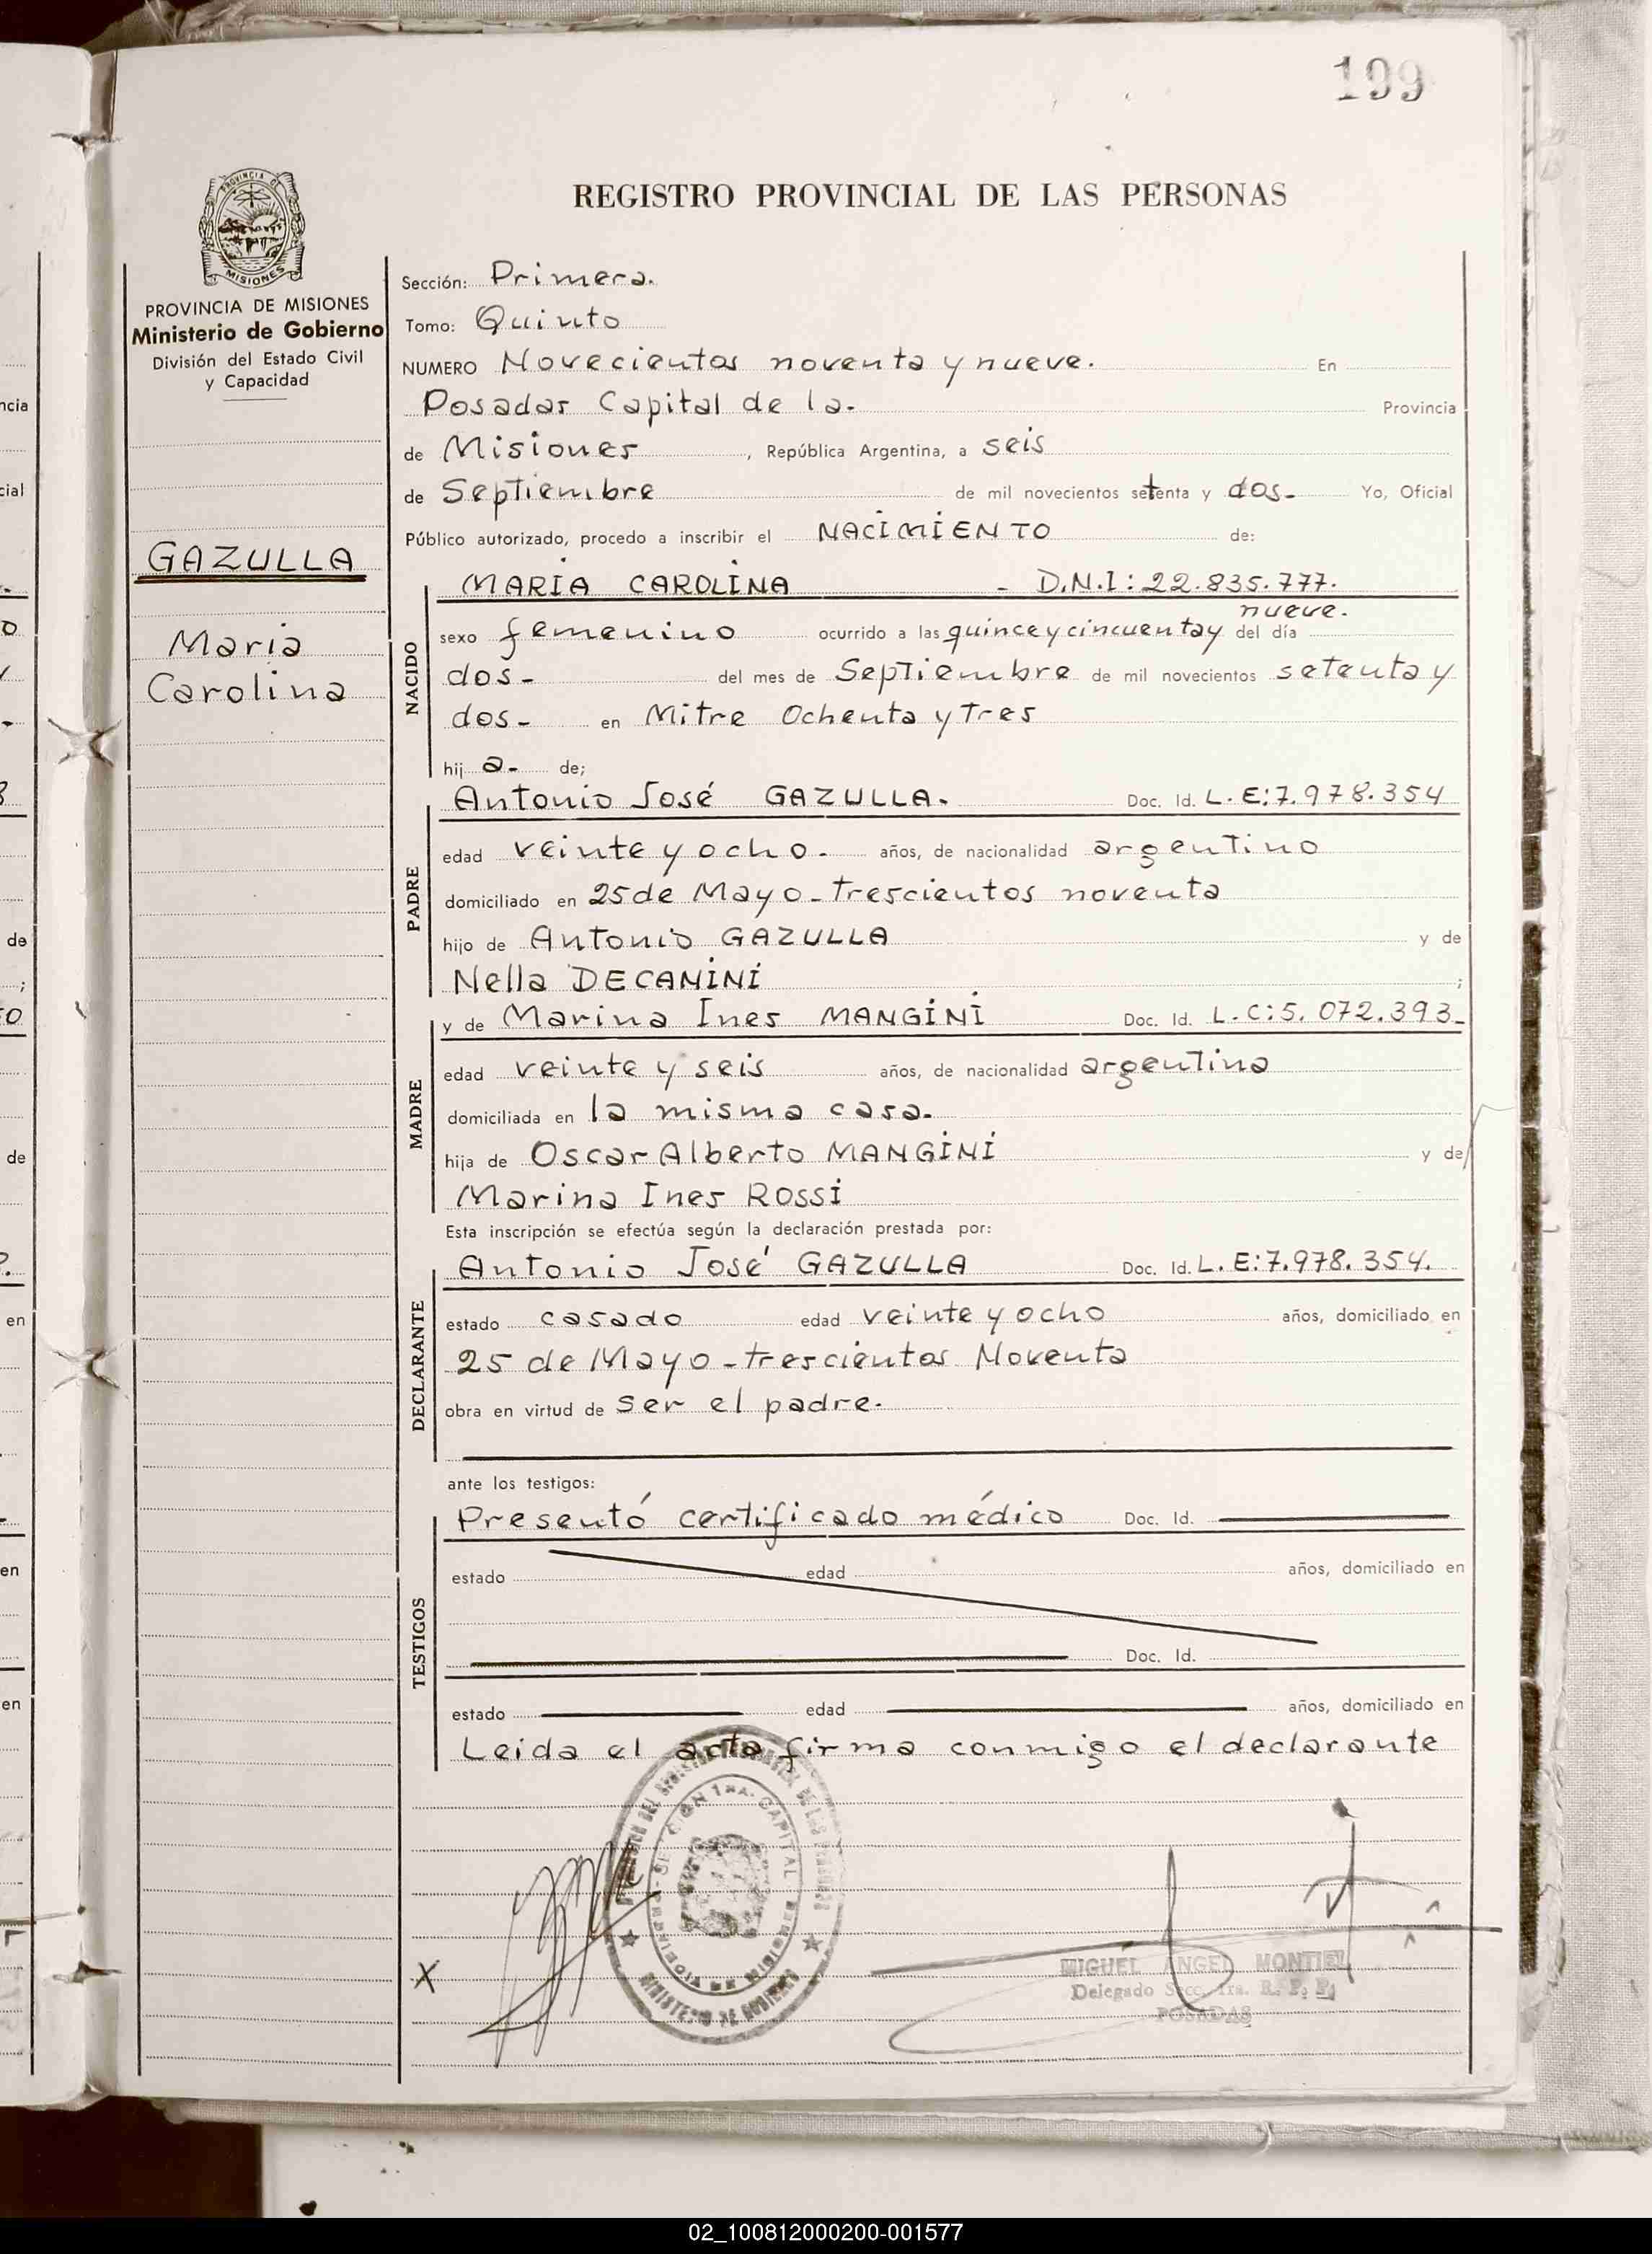 199
PROVINCIA DE
MISIONES
PROVINCIA DE MISIONES
Ministerio de Gobierno
División del Estado Civil
y Capacidad
GAZULLA
Maria
Carolina
REGISTRO PROVINCIAL DE LAS PERSONAS
Sección: Primera.
Tomo: Quinto
NUMERO Novecientos noventa y nueve. En
Posadas Capital de la. Provincia
de Misiones, República Argentina, a seis
de Septiembre de mil novecientos setenta y dos- Yo, Oficial
Público autorizado, procedo a inscribir el NACIMIENTO de:
NACIDO
MARIA CAROLINA - D.N.I: 22.835.777.
nueve.
sexo femenino ocurrido a las quince y cincuenta y del día
dos- del mes de Septiembre de mil novecientos setenta y
dos- en Mitre Ochenta y Tres
hij a- de;
PADRE
Antonio José GAZULLA. Doc. Id. L.E:7.978.354
edad veinte y ocho. años, de nacionalidad argentino
domiciliado en 25 de Mayo-trescientos noventa
hijo de Antonio GAZULLA y de
Nella DECANINI ;
MADRE
y de Marina Ines MANGINI Doc. Id. L.C:5.072.393-
edad veinte y seis años, de nacionalidad argentina
domiciliada en la misma casa.
hija de Oscar Alberto MANGINI y de
Marina Ines ROSSI
Esta inscripción se efectúa según la declaración prestada por:
DECLARANTE
Antonio José GAZULLA Doc. Id. L.E:7.978.354.
estado casado edad veinte y ocho años, domiciliado en
25 de Mayo-trescientos Noventa
obra en virtud de ser el padre.
ante los testigos:
TESTIGOS
Presentó certificado médico Doc. Id.
estado edad años, domiciliado en
Doc. Id.
estado edad años, domiciliado en
Leida el acta firma conmigo el declarante
MINISTERIO DE GOBIERNO
PROVINCIA DE MISIONES
CAPITAL
X
MIGUEL ANGEL MONTIEL
Delegado Secc. 1ra. R. P. P.
POSADAS
02_100812000200-001577